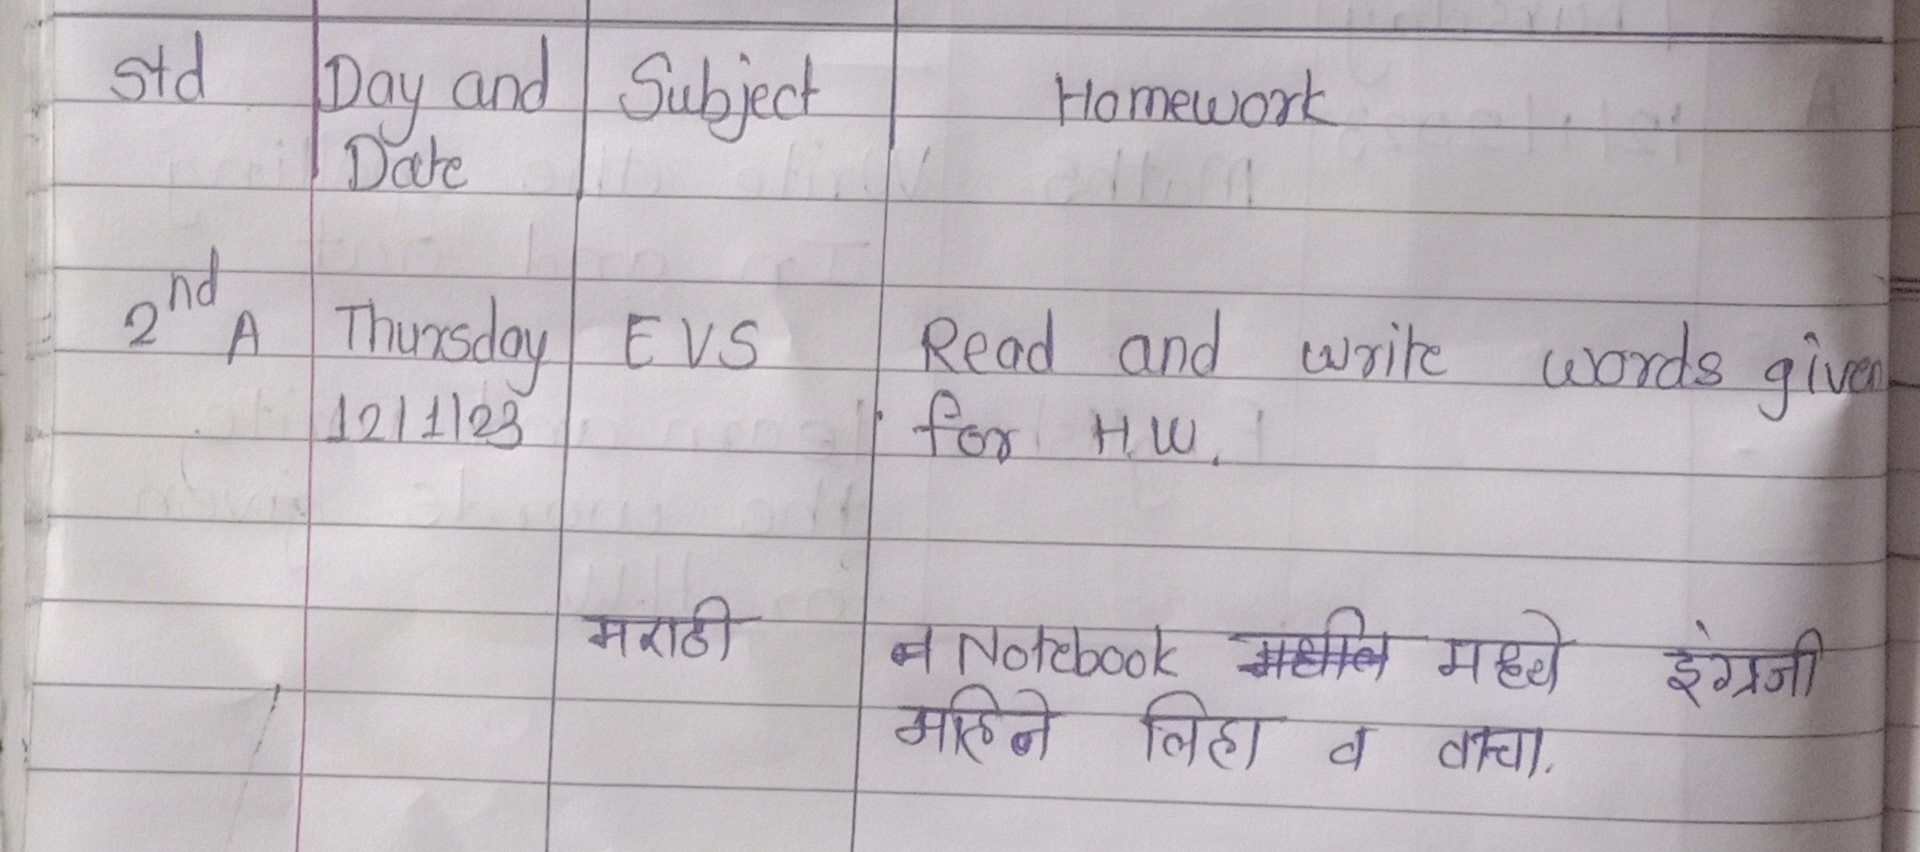 Std Day and Subject Homework
Date
2nd A Thursday EVS Read and write words given
12/1/23 for H.W.
मराठी Notebook मध्ये इंग्रजी
महिने लिहा व वाचा.